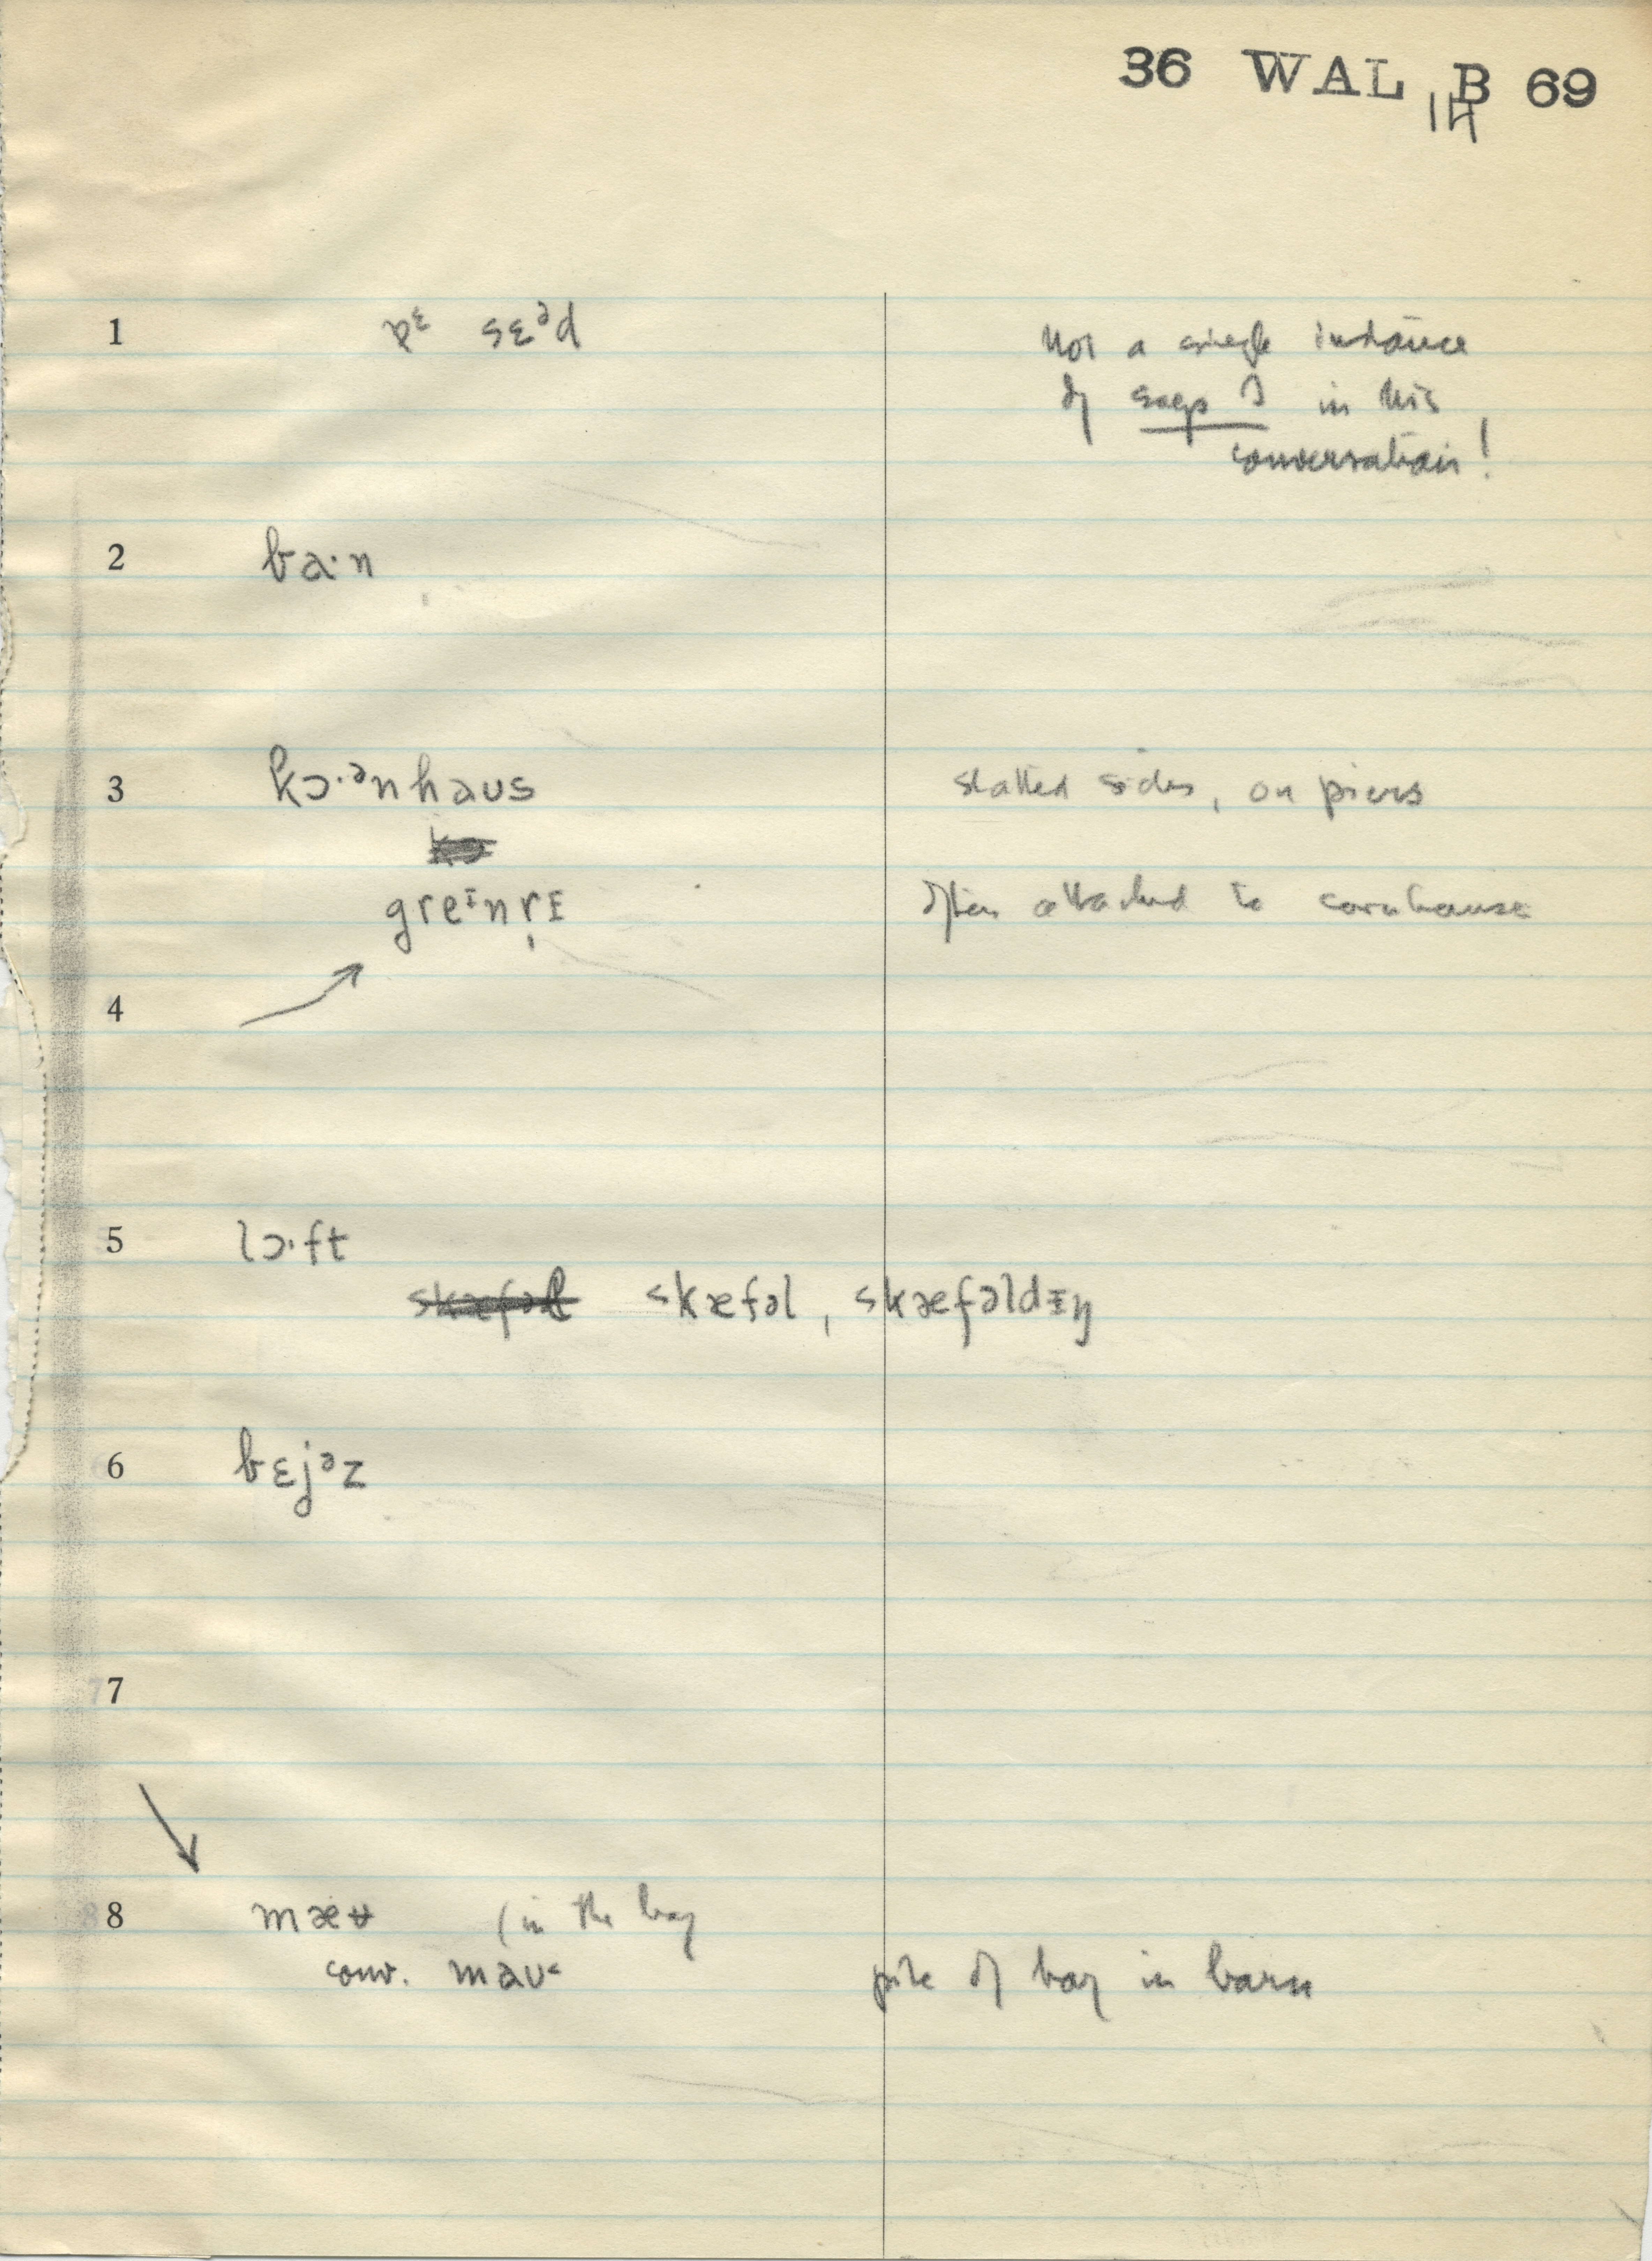 36 WAL B 69
14
1 ɒᶟ sɛᵊd Not a single instance
of says I in his
conversation!
2 ba·n
3 kɔ·ᵊnhaus slatted sides, on piers
greᶦnrɪ often attached to cornhouse
4
5 lɔ·ft
skæfəl, skæfəldɪŋ
6 bɛjᵊz
7
8 mæʉ (in the bay
conv. maʊ pile of hay in barn